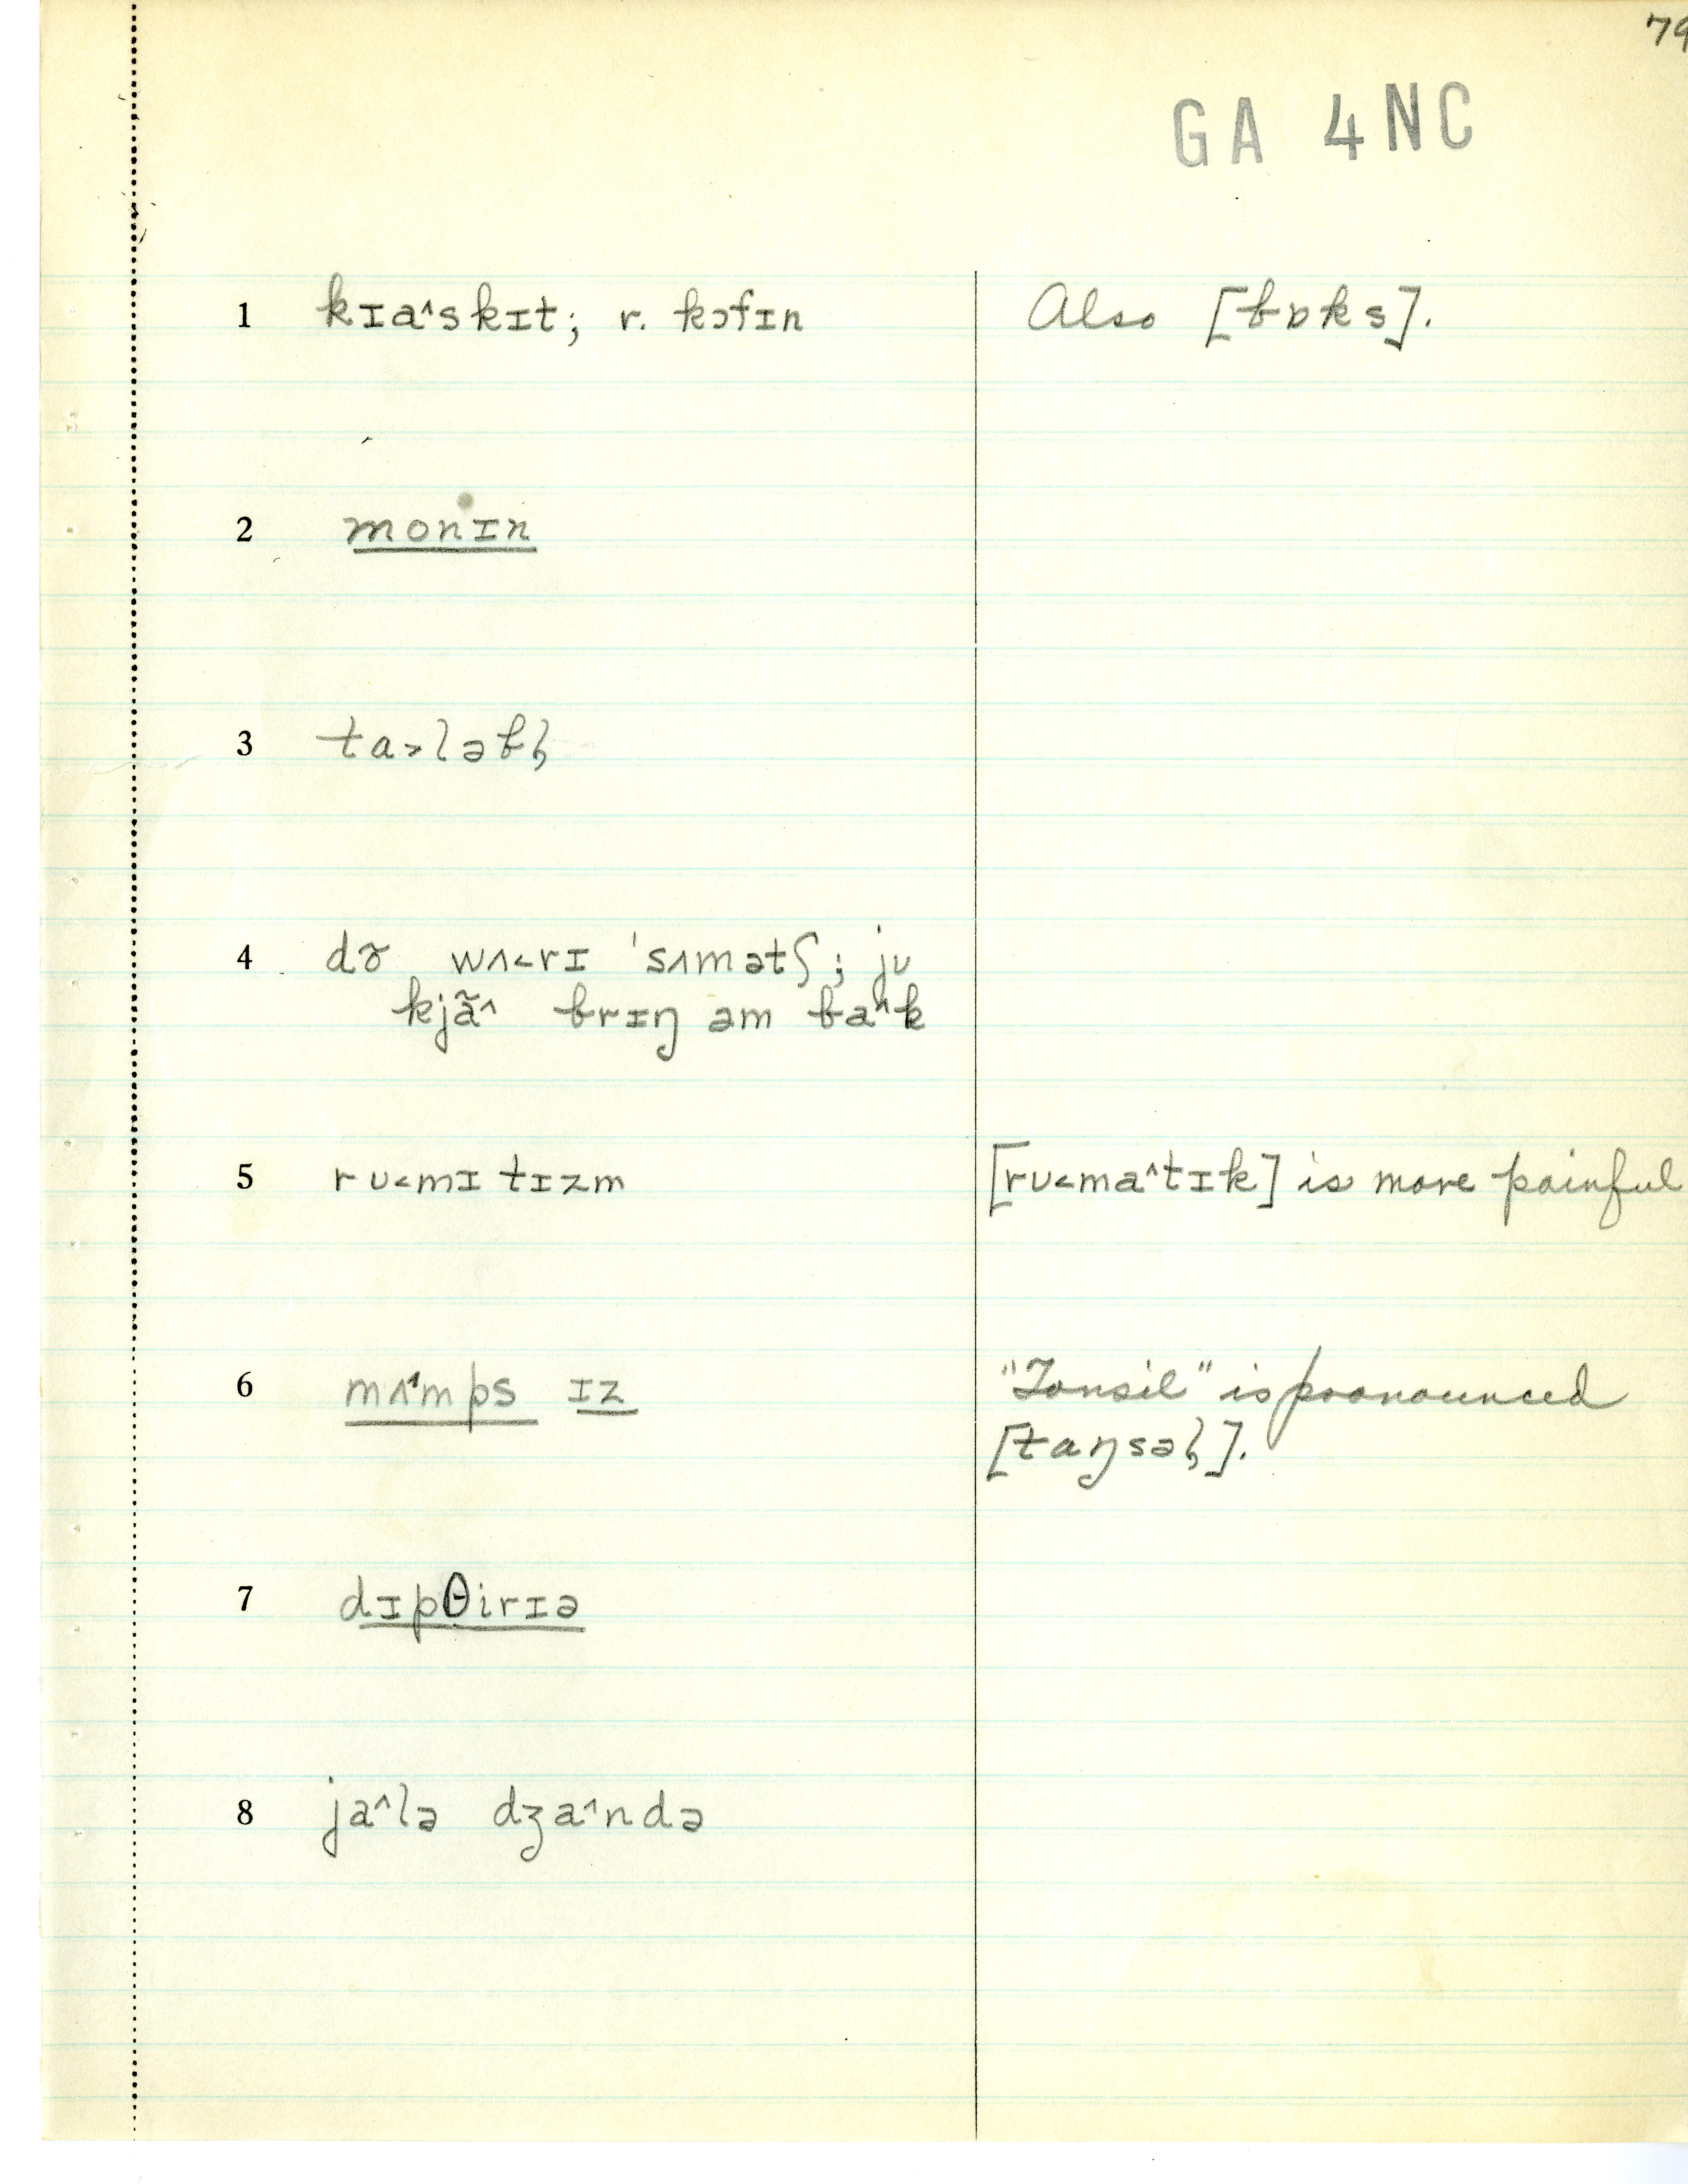 79
GA 4NC
1 kɪa^skɪt; r. kɔfɪn Also [bɒks].
2 monɪn
3 ta>ləbl̩
4 dõ wʌ<rɪ ˈsʌmətʃ; jʊ
kjã^ brɪŋ əm ba^k
5 rʊ<mɪtɪzm [rʊ<ma^tɪk] is more painful
6 mʌ^mps ɪz "Tonsil" is pronounced
[taŋsəl̩].
7 dɪpθirɪə
8 ja^lə dʒa^ndə